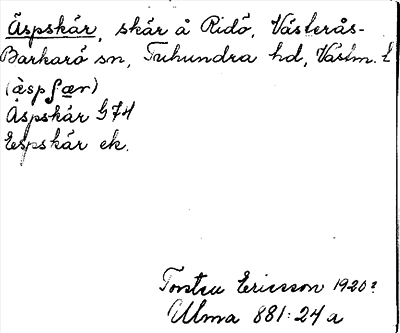 Äspskär, skär å Ridö, Västerås-
Barkarö sn, Tuhundra hd, Västm. l
(ä̀spʃær)
Äspskär G74
Espskär ek.
Torsten Ericsson 1920?
Ulma 881:24a